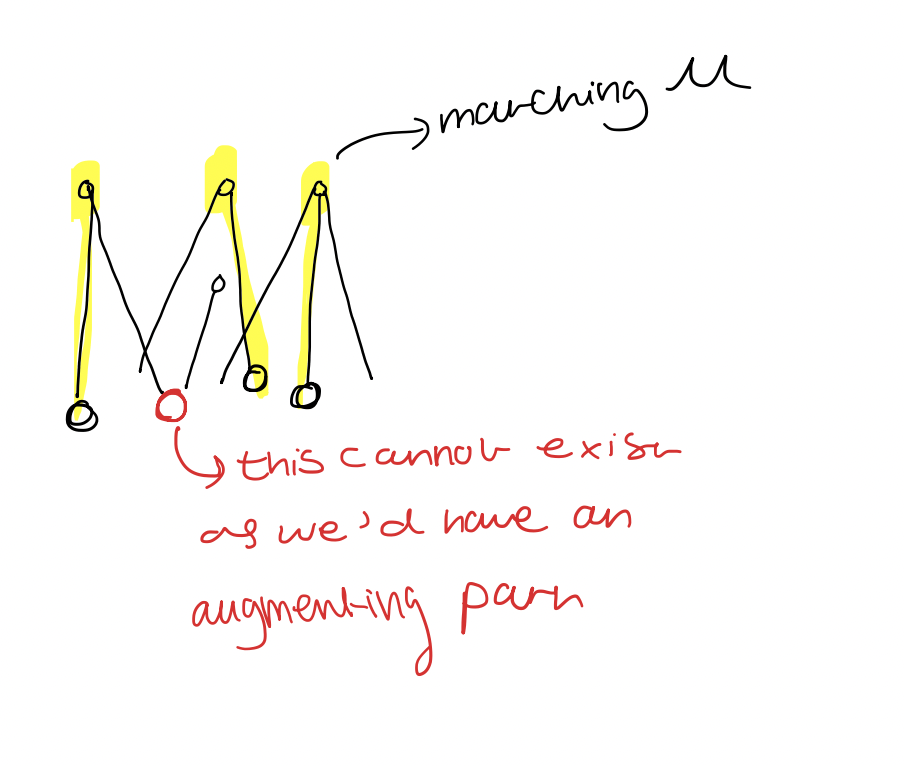 matching M
this cannot exist
as we'd have an
augmenting path